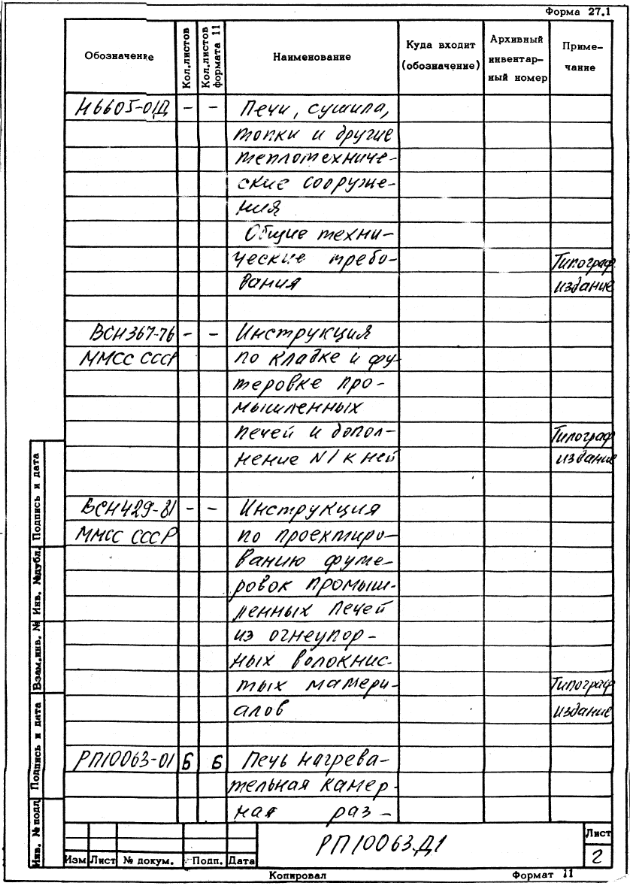 Форма 27.1
Обозначение Кол.листов Кол.листов формата 11 Наименование Куда входит (обозначение) Архивный инвентар-ный номер Приме-чание
Н6605-01Д - - Печи, сушила,
топки и другие
теплотехниче-
ские сооруже-
ния
Общие техни-
ческие требо- Типограф
вания издание
ВСН367-76 - - Инструкция
ММСС СССР по кладке и фу-
теровке про-
мышленных
печей и допол- Типограф
нение N1 к ней издание
ВСН429-81 - - Инструкция
ММСС СССР по проектиро-
ванию футе-
ровок промыш-
ленных печей
из огнеупор-
ных волокнис-
тых матери- Типограф
алов издание
РП10063-01 Б Б Печь нагрева-
тельная камер-
ная раз-
Инв. № подл Подпись и дата Взам.инв. № Инв. №дубл. Подпись и дата
РП10063.Д1
Лист
2
Изм Лист № докум. Подп. Дата
Копировал Формат 11